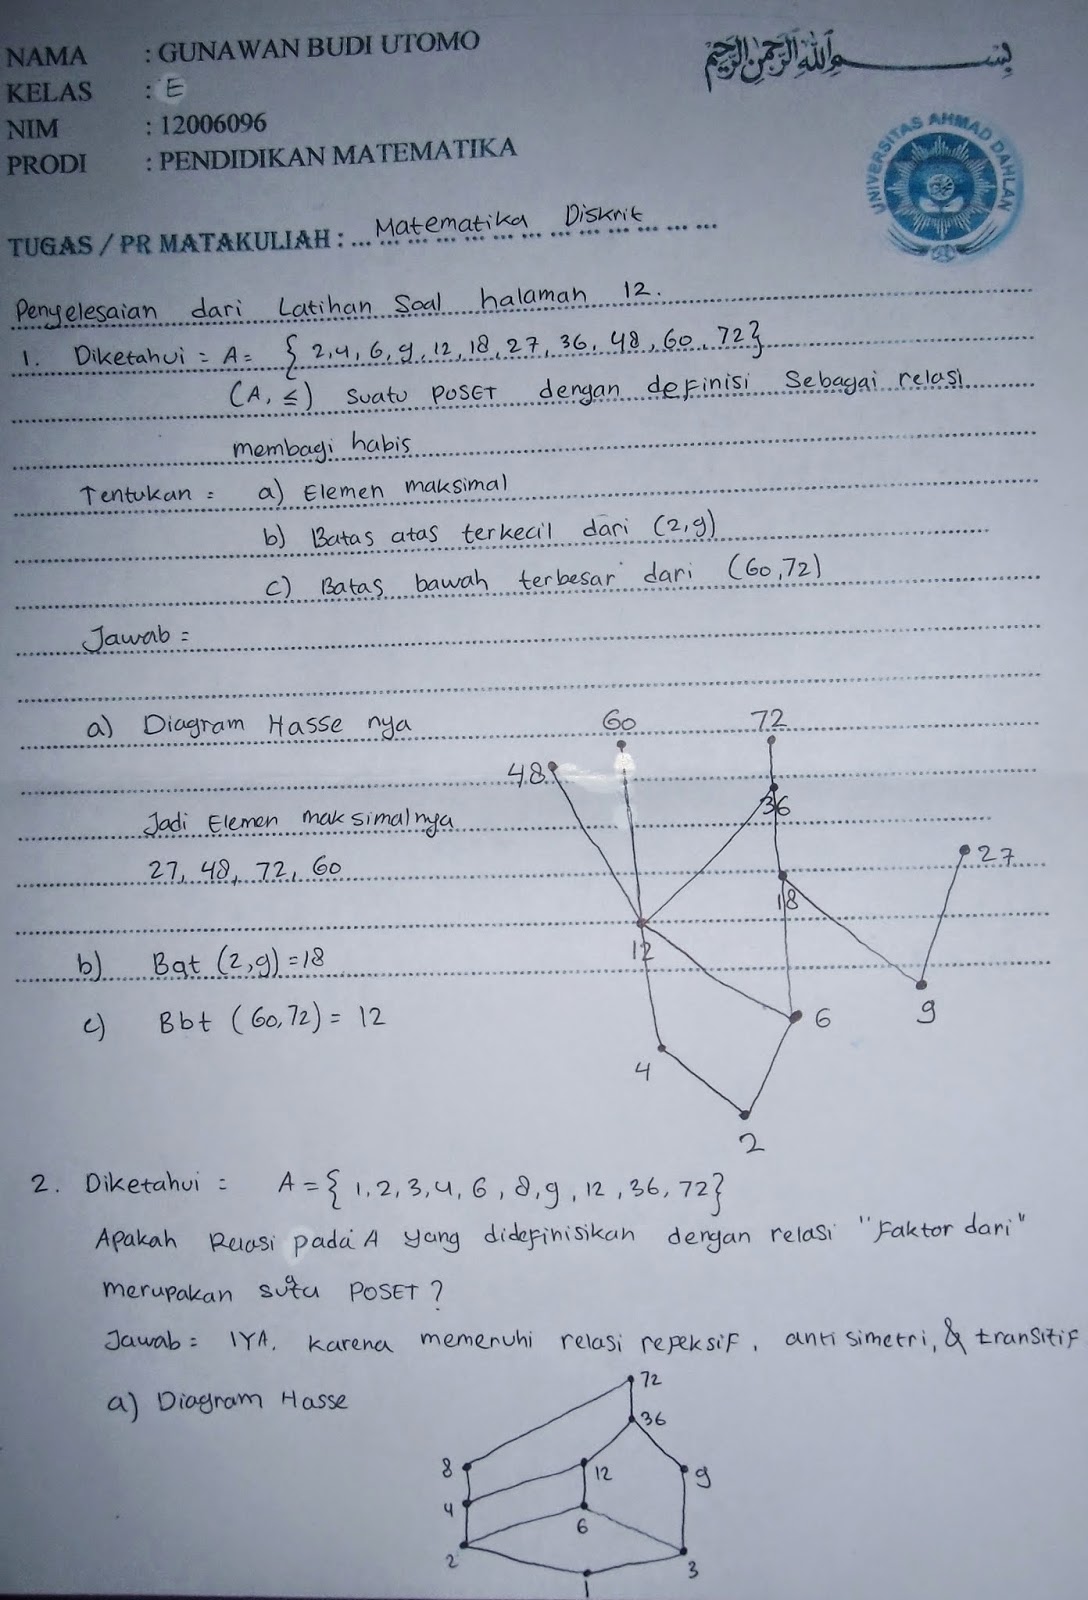 NAMA : GUNAWAN BUDI UTOMO
KELAS : E
NIM : 12006096
PRODI : PENDIDIKAN MATEMATIKA
بِسْمِ اللهِ الرَّحْمٰنِ الرَّحِيْمِ
UNIVERSITAS AHMAD DAHLAN
TUGAS / PR MATAKULIAH : ... Matematika Diskrit ...
Penyelesaian dari Latihan Soal halaman 12.
1. Diketahui = A = { 2,4, 6, 9, 12, 18, 27, 36, 48, 60, 72}
(A, ≤) suatu POSET dengan definisi Sebagai relasi
membagi habis
Tentukan = a) Elemen maksimal
b) Batas atas terkecil dari (2,9)
c) Batas bawah terbesar dari (60,72)
Jawab =
a) Diagram Hasse nya
60
72
48
36
Jadi Elemen maksimalnya
27, 48, 72, 60
27
18
12
b) Bat (2,9) = 18
c) Bbt (60,72) = 12
6
9
4
2
2. Diketahui = A = { 1, 2, 3, 4, 6, 8, 9, 12, 36, 72}
Apakah Relasi pada A yang didefinisikan dengan relasi "Faktor dari"
merupakan suatu POSET ?
Jawab = IYA, karena memenuhi relasi refeksif, anti simetri, & transitif
a) Diagram Hasse
72
36
8
12
9
4
6
2
3
1